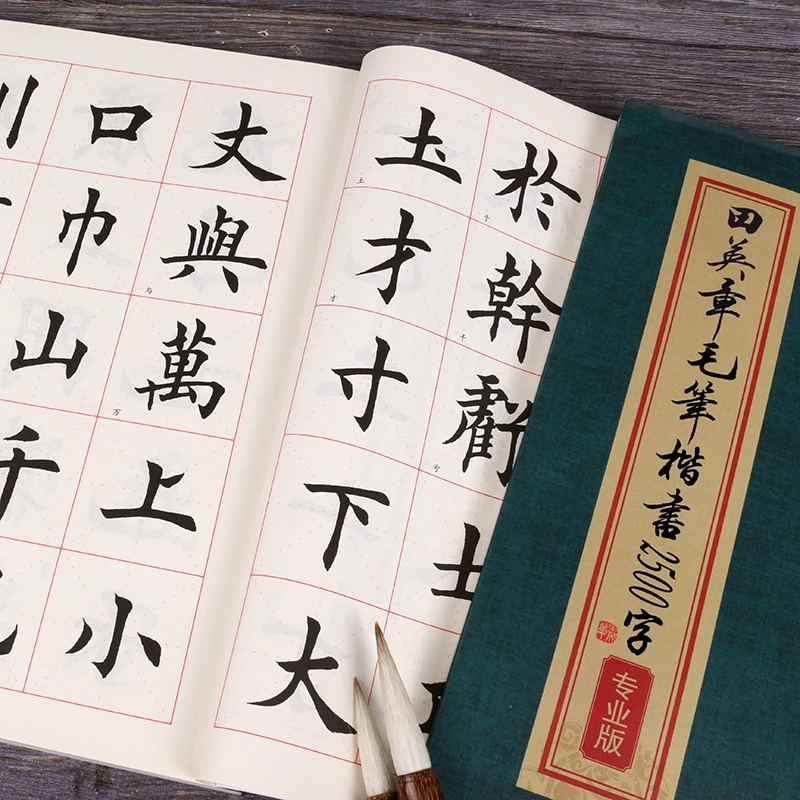 田英章毛筆楷書2500字
专业版
於
幹
干
虧
亏
士
土
土
才
才
寸
下
大
丈
與
与
萬
万
上
小
口
巾
山
千